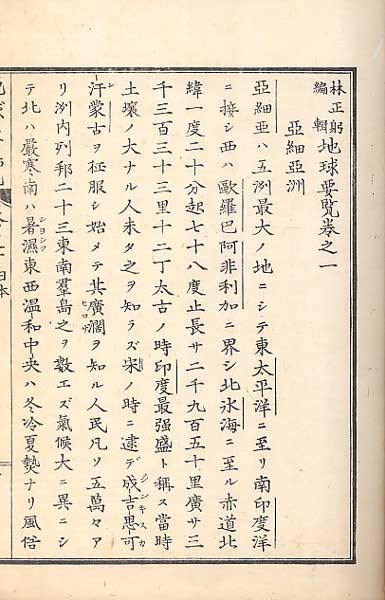 林正躬編輯地球要覽巻之一
亞細亞洲
亞細亜ハ五洲最大ノ地ニシテ東太平洋ニ至リ南印度洋
ニ接シ西ハ歐羅巴阿非利加ニ界シ北氷海ニ至ル赤道北
緯一度二十分起七十八度止長サ二千九百五十里廣サ三
千三百三十三里十二丁太古ノ時印度最强盛ト稱ス當時
土壤ノ大ナル人未タ之ヲ知ラズ宋ノ時ニ逮デ成吉思可
シンキスカ
汗蒙古ヲ征服シ始メテ其廣濶ヲ知ル人民凡ソ五萬々ア
リ洲内列邦二十三東南羣島之ヲ數エズ氣候大ニ異ニシ
テ北ハ嚴寒南ハ暑濕東西溫和中央ハ冬冷夏熱ナリ風俗
ショシツ
日本